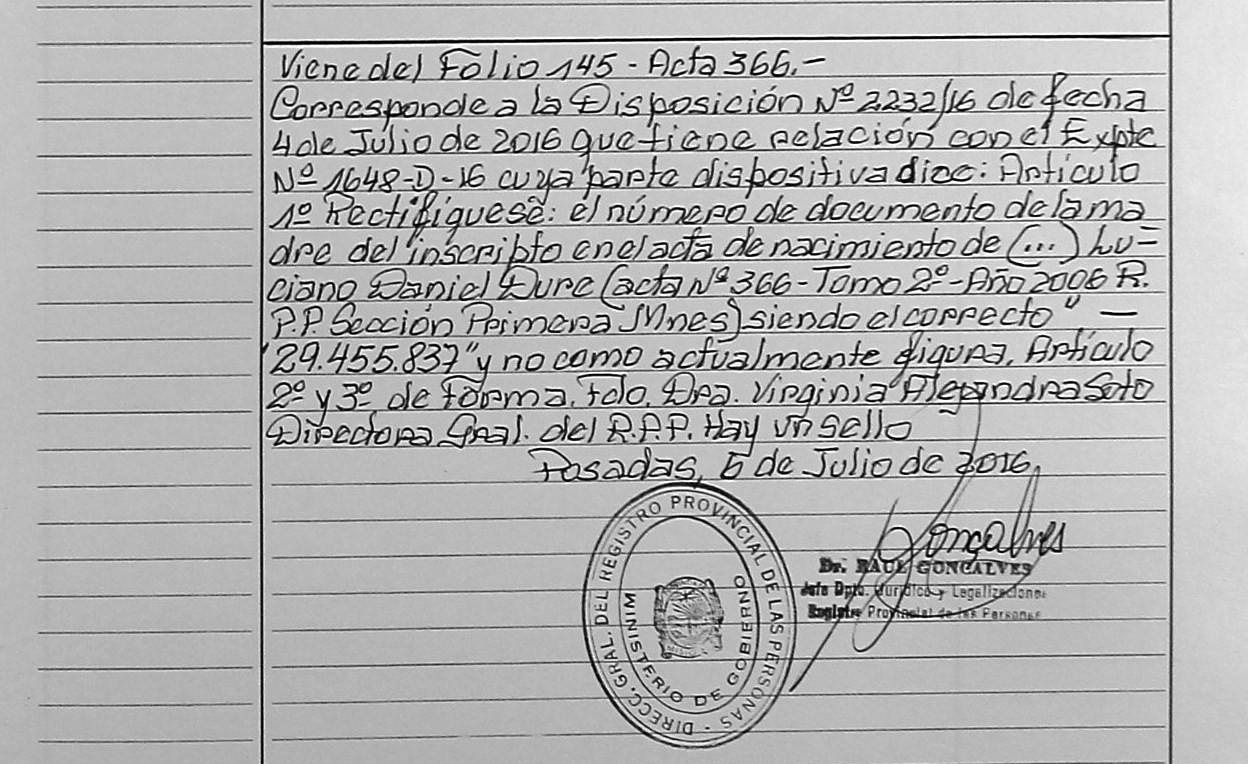 Viene del Folio 145 - Acta 366.-
Corresponde a la Disposición Nº 2232/16 de fecha
4 de Julio de 2016 que tiene relación con el Expte
Nº 1648-D-16 cuya parte dispositiva dice: Artículo
1º Rectifíquese: el número de documento de la ma
dre del inscripto en el acta de nacimiento de (...) Lu=
ciano Daniel Dure (acta Nº 366 - Tomo 2º - Año 2006 R.
P.P. Sección Primera Mnes) siendo el correcto " —
"29.455.837" y no como actualmente figura. Artículo
2º y 3º de Forma. Fdo. Dra. Virginia Alejandra Soto
Directora Gral. del R.P.P. Hay un sello
Posadas, 5 de Julio de 2016.
DIRECC. GRAL. DEL REGISTRO PROVINCIAL DE LAS PERSONAS -
MINISTERIO DE GOBIERNO
Gonçalves
Dr. RAUL GONCALVES
Jefe Dpto. Jurídico y Legalizaciones
Registro Provincial de las Personas